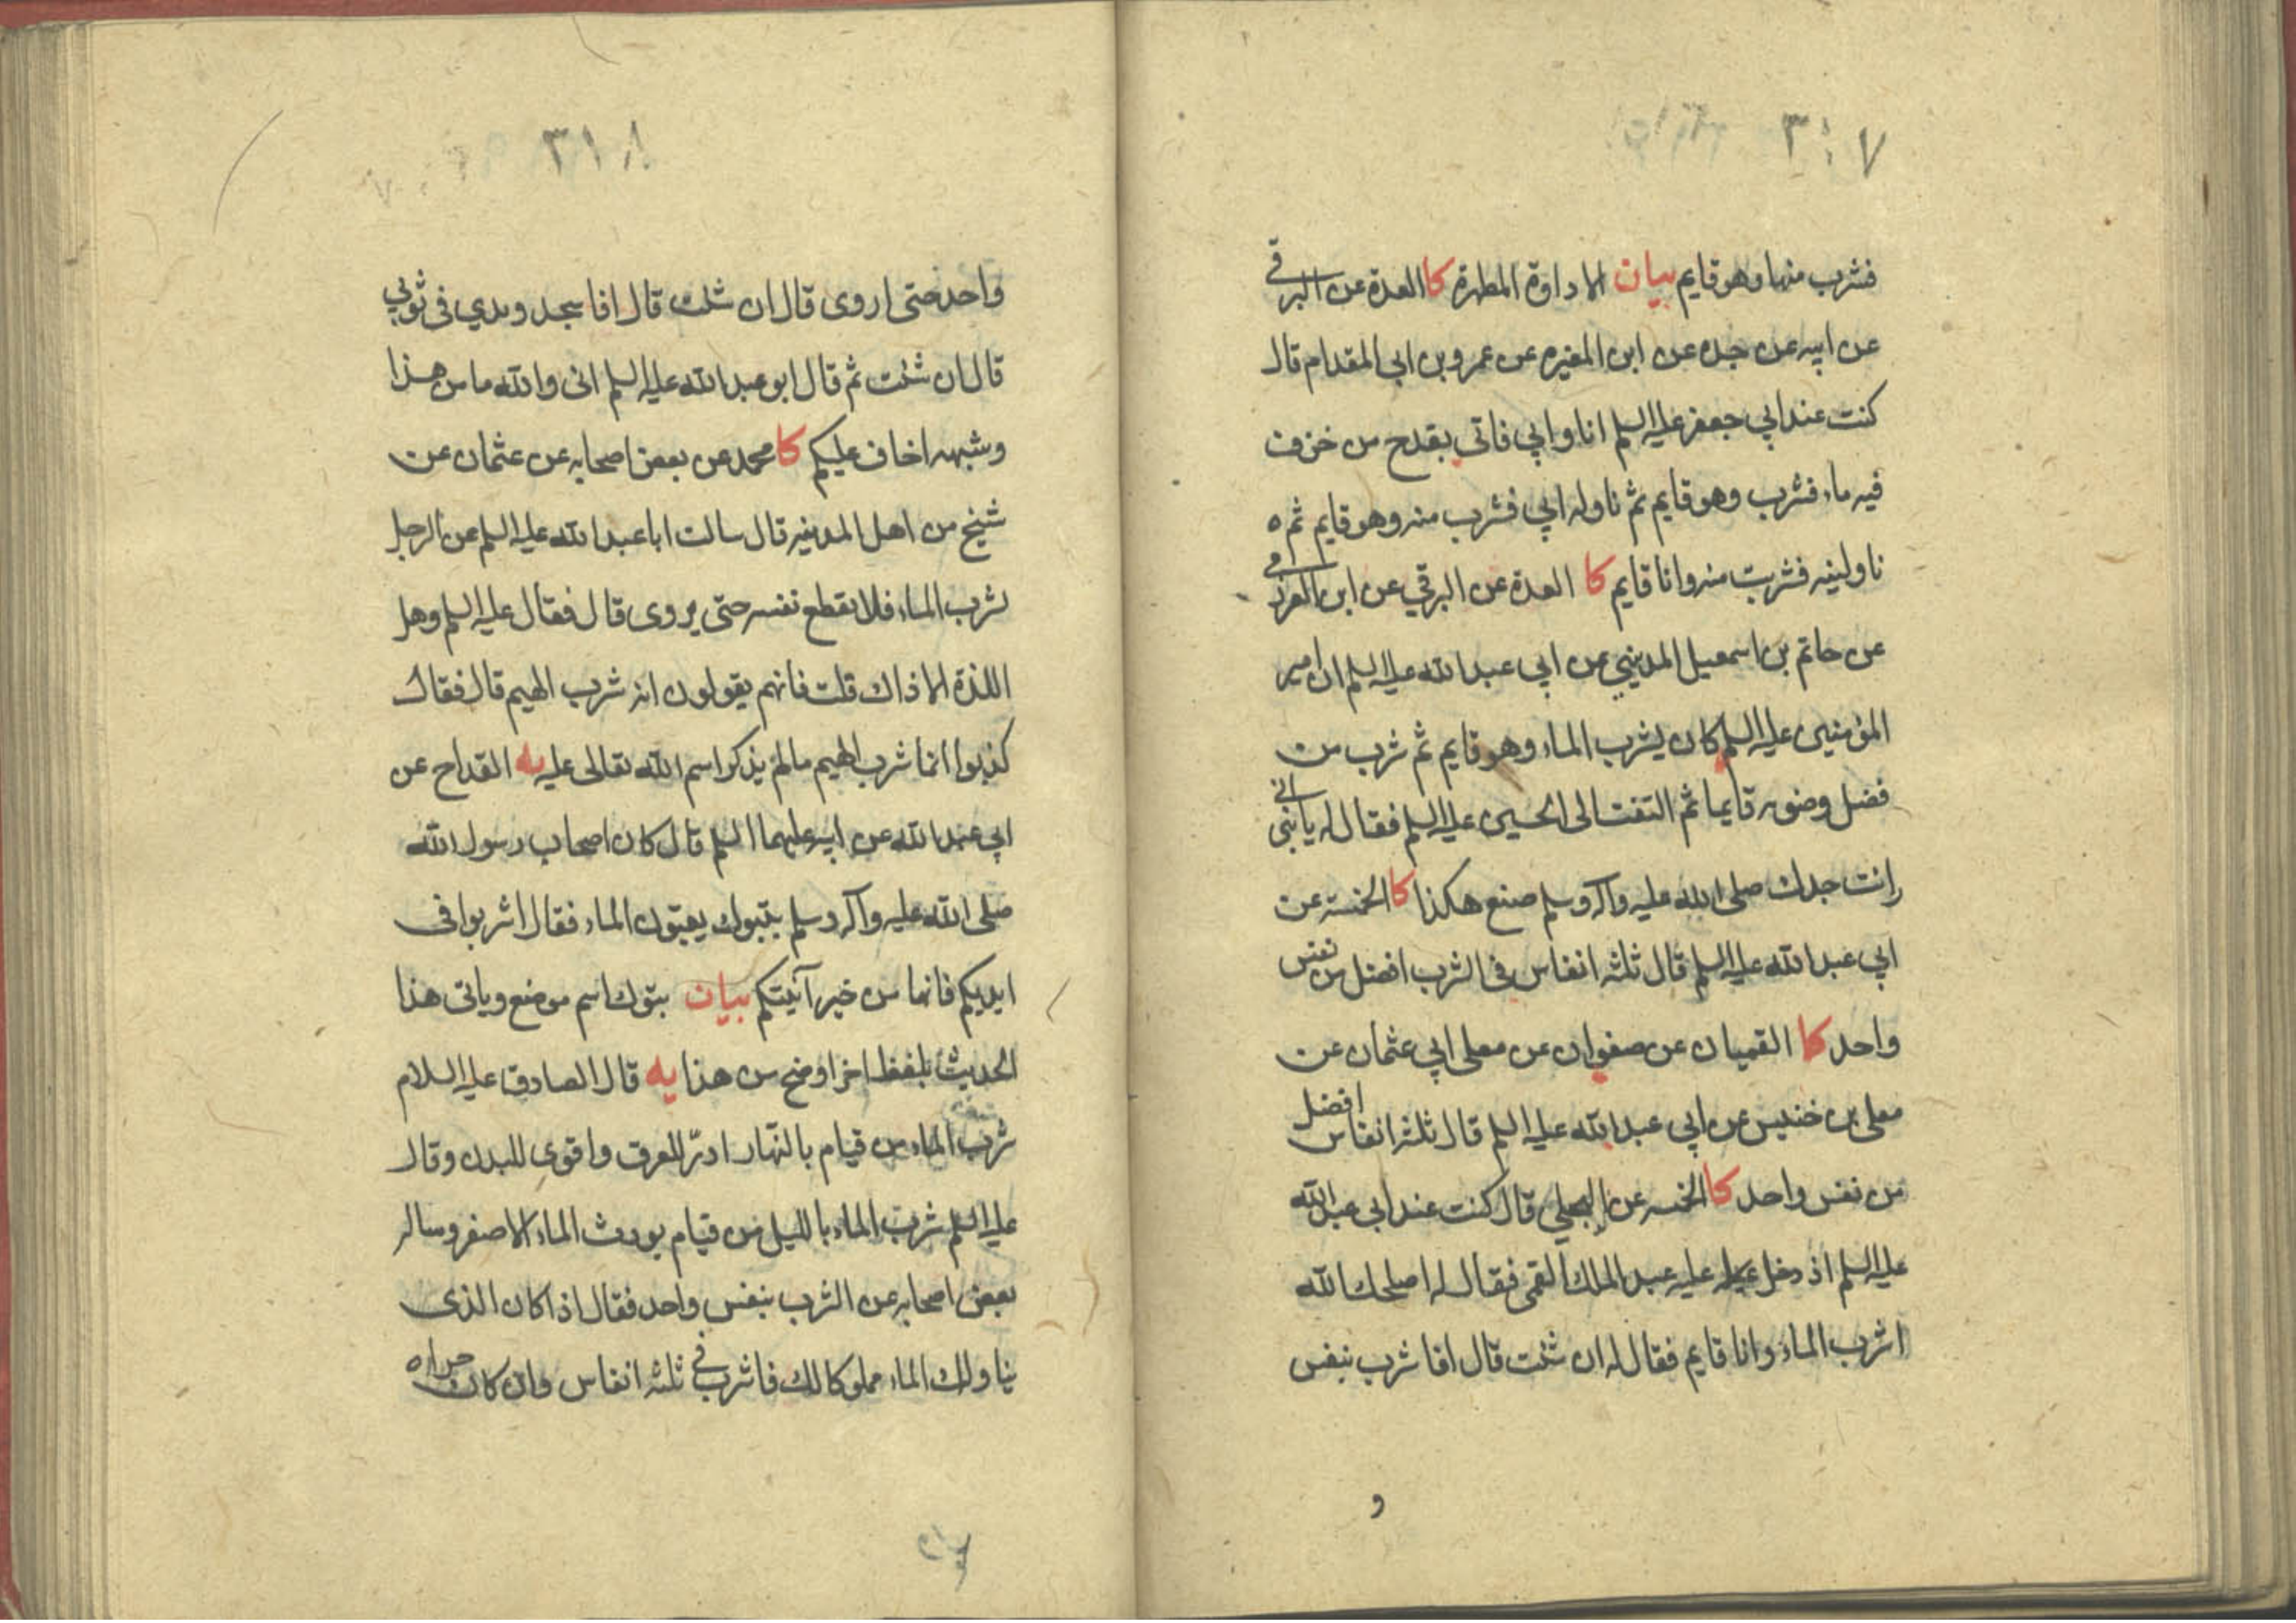 ٣١٧
فشرب منها وهو قايم بيان الاداوة المطهرة كا العدة عن البرقي
عن ابيه عن جده عن ابن المغيره عن عمرو بن ابي المقدام قال
كنت عند ابي جعفر عليه السلم انا و ابي فاتي بقدح من خزف
فيه ماء فشرب وهو قايم ثم ناوله ابي فشرب منه وهو قايم ثم ه
ناولينه فشربت منه وانا قايم كا العدة عن البرقي عن ابن العزرمي
عن حاتم بن اسمعيل المديني عن ابي عبد الله عليه السلم ان امير
المؤمنين عليه السلم كان يشرب الماء وهو قايم ثم شرب من
فضل وضوءه قايما ثم التفت الى الحسين عليه السلم فقال له يا بنى اني
رايت جدك صلى الله عليه وآله وسلم صنع هكذا كا الخمسة عن
ابي عبد الله عليه السلم قال ثلثه انفاس في الشرب افضل من نفس
واحد كا القميان عن صفوان عن معلى ابي عثمان عن
معلى بن خنيس عن ابي عبد الله عليه السلم قال ثلثه انفاس افضل
من نفس واحد كا الخمسه عن البجلي قال كنت عند ابي عبد الله
عليه السلم اذ دخل عليه عبد الملك القمى فقال له اصلحك الله
اشرب الماء وانا قايم فقال له ان شئت قال افا شرب بنفس
و
٣١٨
واحد حتى اروى قال ان شئت قال افا سجد ويدي في ثوبي
قال ان شئت ثم قال ابو عبد الله عليه السلم انى والله ما من هذا
وشبهه اخاف عليكم كا محمد عن بعض اصحابه عن عثمان عن
شيخ من اهل المدينه قال سالت ابا عبد الله عليه السلم عن الرجل
يشرب الماء فلا يقطع نفسه حتى يروى قال فقال عليه السلم وهل
اللذة الا ذاك قلت فانهم يقولون انه شرب الهيم قال فقال
كذبوا انما شرب الهيم مالم يذكر اسم الله تعالى عليه يه القداح عن
ابي عبد الله عن ابيه عليهما السلم قال كان اصحاب رسول الله
صلى الله عليه وآله وسلم بتبوك يعبون الماء فقال اشربوا في
ايديكم فانها من خير آنيتكم بيان بتوك اسم موضع وياتى هذا
الحديث بلفظ اخر اوضح من هذا يه قال الصادق عليه السلام
شرب الماء من قيام بالنهار ادرّ للعرق واقوى للبدن وقال
عليه السلم شرب الماء بالليل من قيام يورث الماء الاصفر وساله
بعض اصحابه عن الشرب بنفس واحد فقال اذا كان الذى
يناولك الماء مملوكا لك فاشرب في ثلثه انفاس وان كان حرا ه